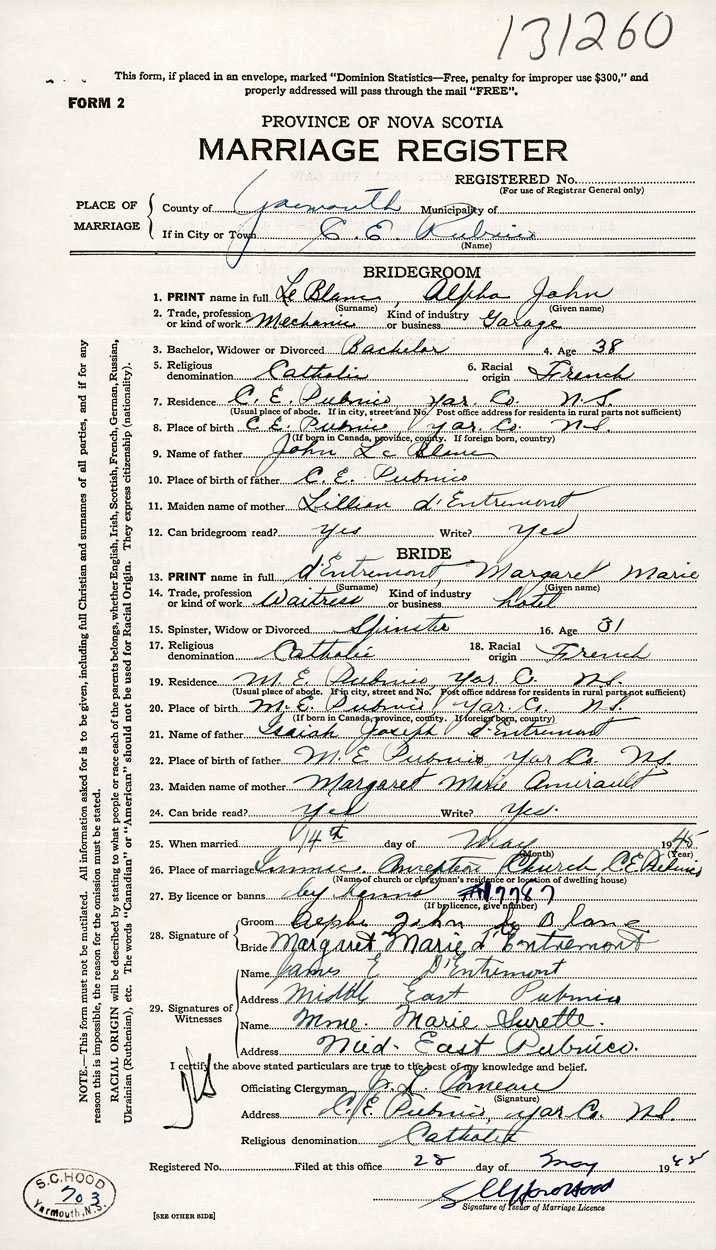 131260
This form, if placed in an envelope, marked "Dominion Statistics—Free, penalty for improper use $300," and
properly addressed will pass through the mail "FREE".
FORM 2
PROVINCE OF NOVA SCOTIA
MARRIAGE REGISTER
REGISTERED No.
(For use of Registrar General only)
PLACE OF MARRIAGE
County of Yarmouth Municipality of
If in City or Town C. E. Pubnico
(Name)
BRIDEGROOM
1. PRINT name in full Le Blanc, Alpha John
(Surname) (Given name)
2. Trade, profession or kind of work Mechanic Kind of industry or business Garage
3. Bachelor, Widower or Divorced Bachelor 4. Age 38
5. Religious denomination Catholic 6. Racial origin French
7. Residence C. E. Pubnico Yar. Co. N.S.
(Usual place of abode. If in city, street and No. Post office address for residents in rural parts not sufficient)
8. Place of birth C.E. Pubnico Yar. Co. N.S.
(If born in Canada, province, county. If foreign born, country)
9. Name of father John Le Blanc
10. Place of birth of father C. E. Pubnico
11. Maiden name of mother Lillian d'Entremont
12. Can bridegroom read? yes Write? yes
BRIDE
13. PRINT name in full d'Entremont, Margaret Marie
(Surname) (Given name)
14. Trade, profession or kind of work Waitress Kind of industry or business hotel
15. Spinster, Widow or Divorced Spinster 16. Age 31
17. Religious denomination Catholic 18. Racial origin French
19. Residence M. E. Pubnico Yar. Co. N.S.
(Usual place of abode. If in city, street and No. Post office address for residents in rural parts not sufficient)
20. Place of birth M. E. Pubnico Yar. Co. N.S.
(If born in Canada, province, county. If foreign born, country)
21. Name of father Isaiah Joseph d'Entremont
22. Place of birth of father M. E Pubnico, Yar Co. N.S.
23. Maiden name of mother Margaret Marie Amirault
24. Can bride read? yes Write? yes.
25. When married 14th day of May 1945
(Month) (Year)
26. Place of marriage Conception Church, C.E. Pubnico
(Name of church or clergyman's residence or location of dwelling house)
27. By licence or banns by banns #17787
(If by licence, give number)
28. Signature of
Groom Alpha John Le Blanc
Bride Margaret Marie d'Entremont
29. Signatures of Witnesses
Name James E D'Entremont
Address Middle East Pubnico
Name Mme. Marie Surette.
Address Mid- East Pubnico.
I certify the above stated particulars are true to the best of my knowledge and belief.
Officiating Clergyman L. Comeau
(Signature)
Address C. E. Pubnico, Yar Co. N.S.
Religious denomination Catholic
Registered No. Filed at this office 28 day of May 19
Signature of Issuer of Marriage Licence
S. C. HOOD
703
Yarmouth, N.S.
[SEE OTHER SIDE]
NOTE.—This form must not be mutilated. All information asked for is to be given, including full Christian and surnames of all parties, and if for any
reason this is impossible, the reason for the omission must be stated.
RACIAL ORIGIN will be described by stating to what people or race each of the parents belongs, whether English, Irish, Scottish, French, German, Russian,
Ukrainian (Ruthenian), etc. The words "Canadian" or "American" should not be used for Racial Origin. They express citizenship (nationality).